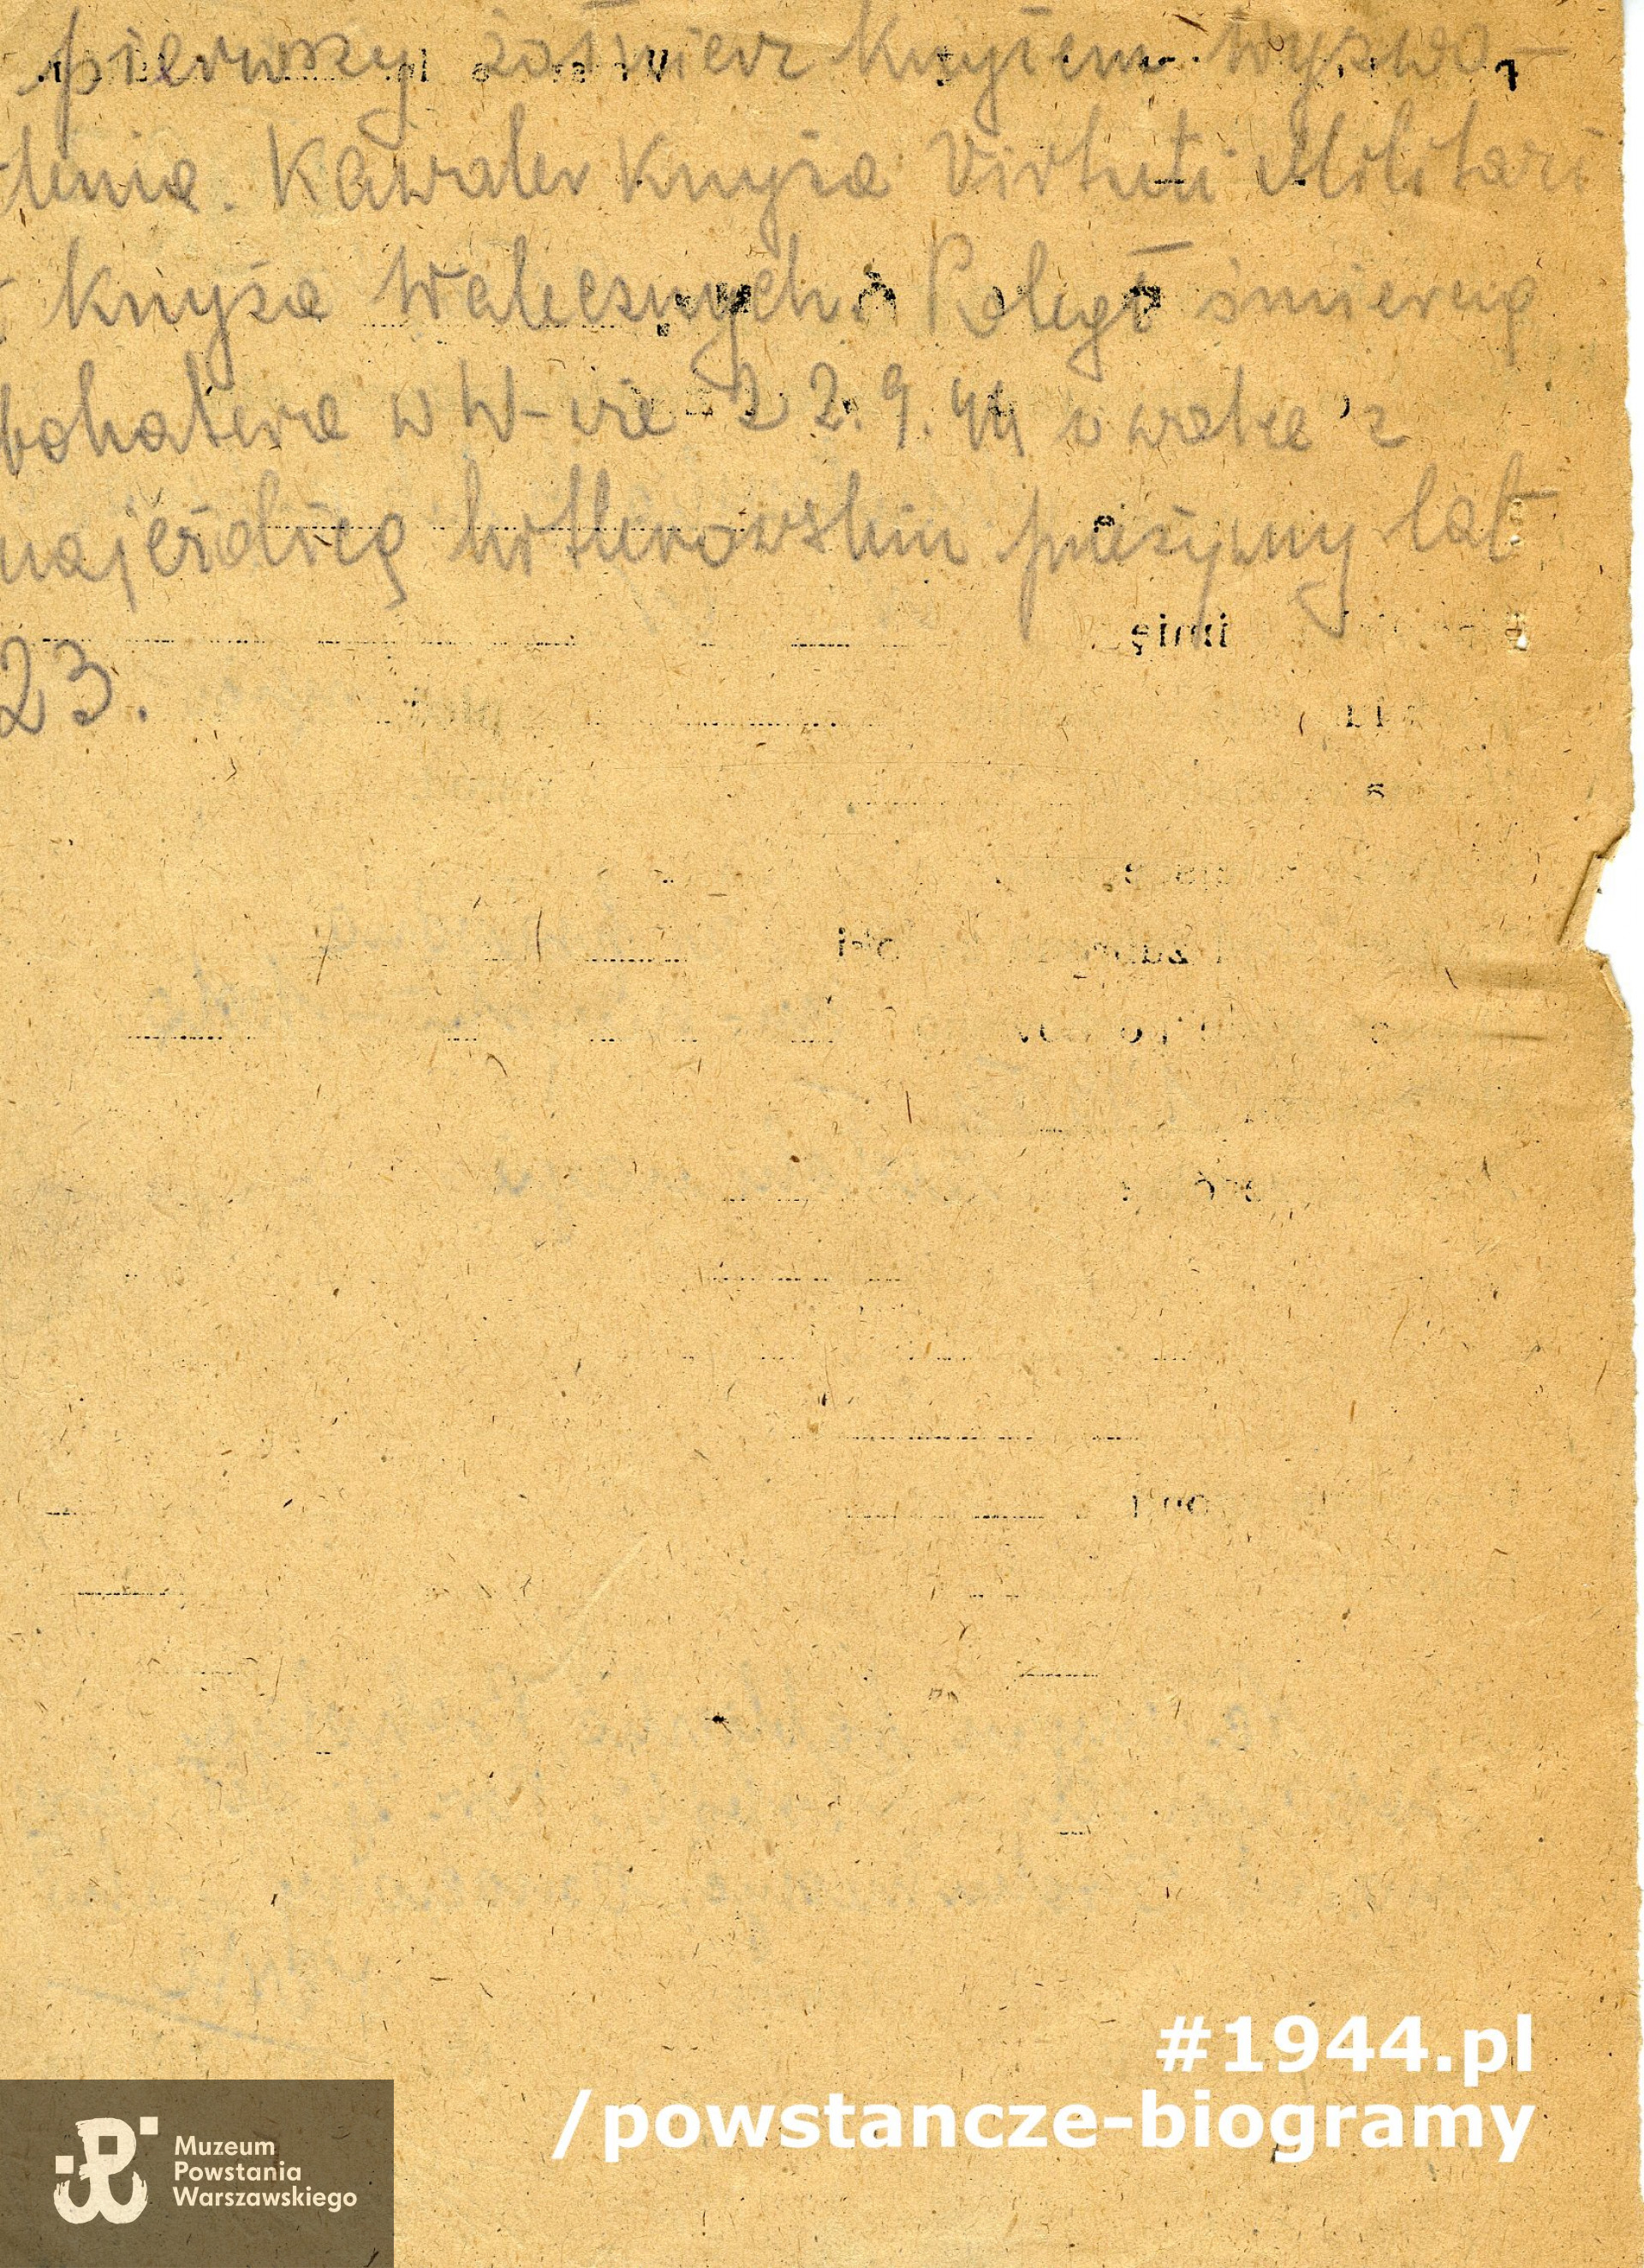 pierwszy żołnierz krzyżem wyzwo-
-lenia. Kawaler krzyża Virtuti Militari
krzyża Walecznych. Poległ śmiercią
bohatera w W-wie 22.9.44 w walce z
najeźdźcą hitlerowskim przeżywszy lat
23.
imię
#1944.pl
/powstancze-biogramy
Muzeum
Powstania
Warszawskiego